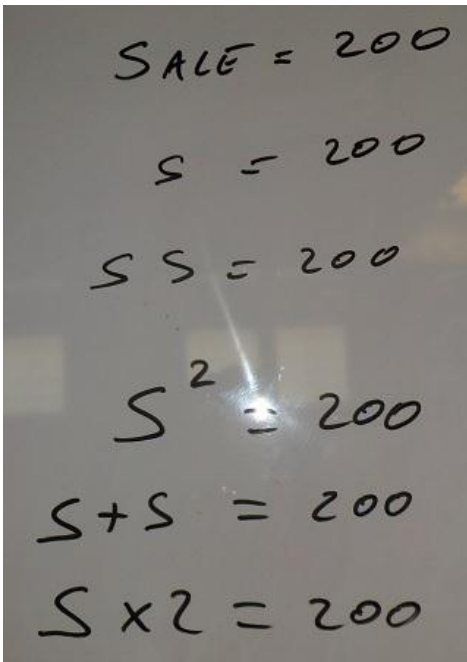 SALE = 200
S = 200
S S = 200
S² = 200
S+S = 200
S x 2 = 200